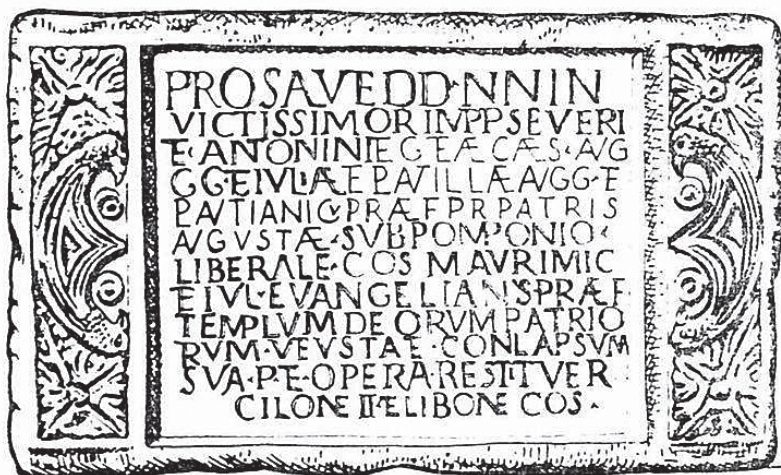 PRO SAVE DD·NN IN
VICTISSIMOR IMPP SEVERI
E·ANTONINI E GETÆ CÆS·AVG
GG·E IVLIÆ E PAVTILLÆ AVGG·E
PAVTIANI CV PRÆF PR PATRIS
AVGVSTÆ·SVB POMPONIO·
LIBERALE·COS MAVRI MIC
E IVL·EVANGELIANVS·PRÆF
TEMPLVM DEORVM PATRIO
RVM·VEVSTAE·CONLAPSVM
SVA·P·E·OPERA·RESTITVER
CILONE II·E LIBONE COS·